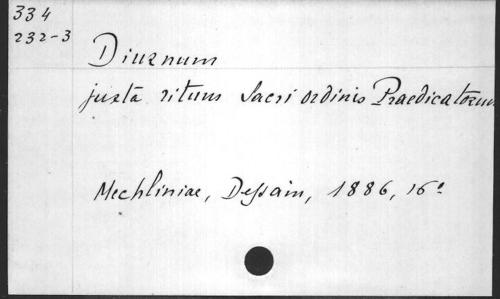 334
232-3
Diurnum
juxta ritum Sacri ordinis Praedicatorum
Mechliniae, Dessain, 1886, 16°